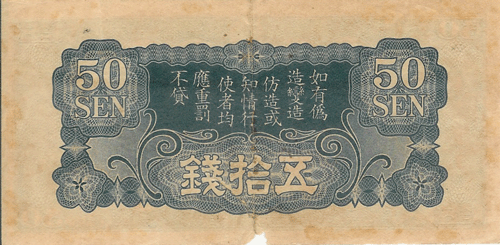 50 SEN
50 SEN
如有偽
造變造
仿造或
知情行
使者均
應重罰
不貸
五拾錢